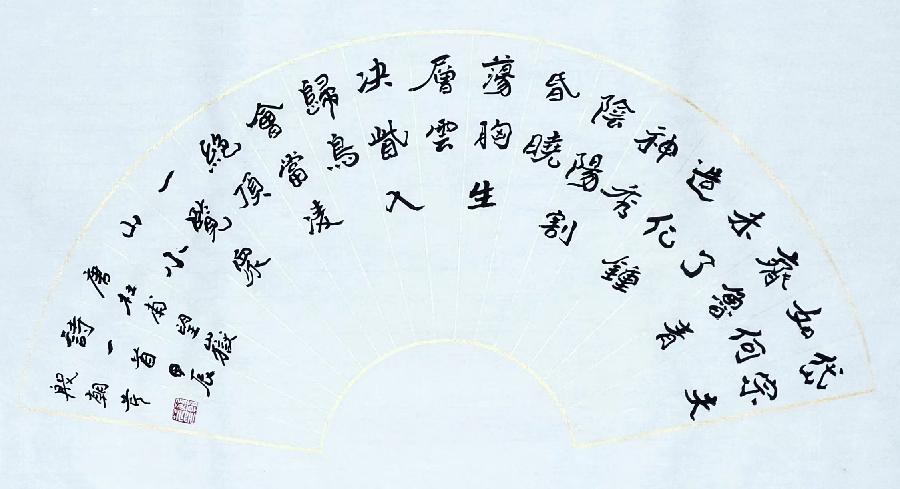 岱宗夫
如何
齊魯青
未了
造化鍾
神秀
陰陽割
昏曉
蕩胸生
層雲
决眥入
歸鳥
會當凌
絕頂
一覽衆
山小
唐杜甫望嶽
詩一首甲辰
殷朝